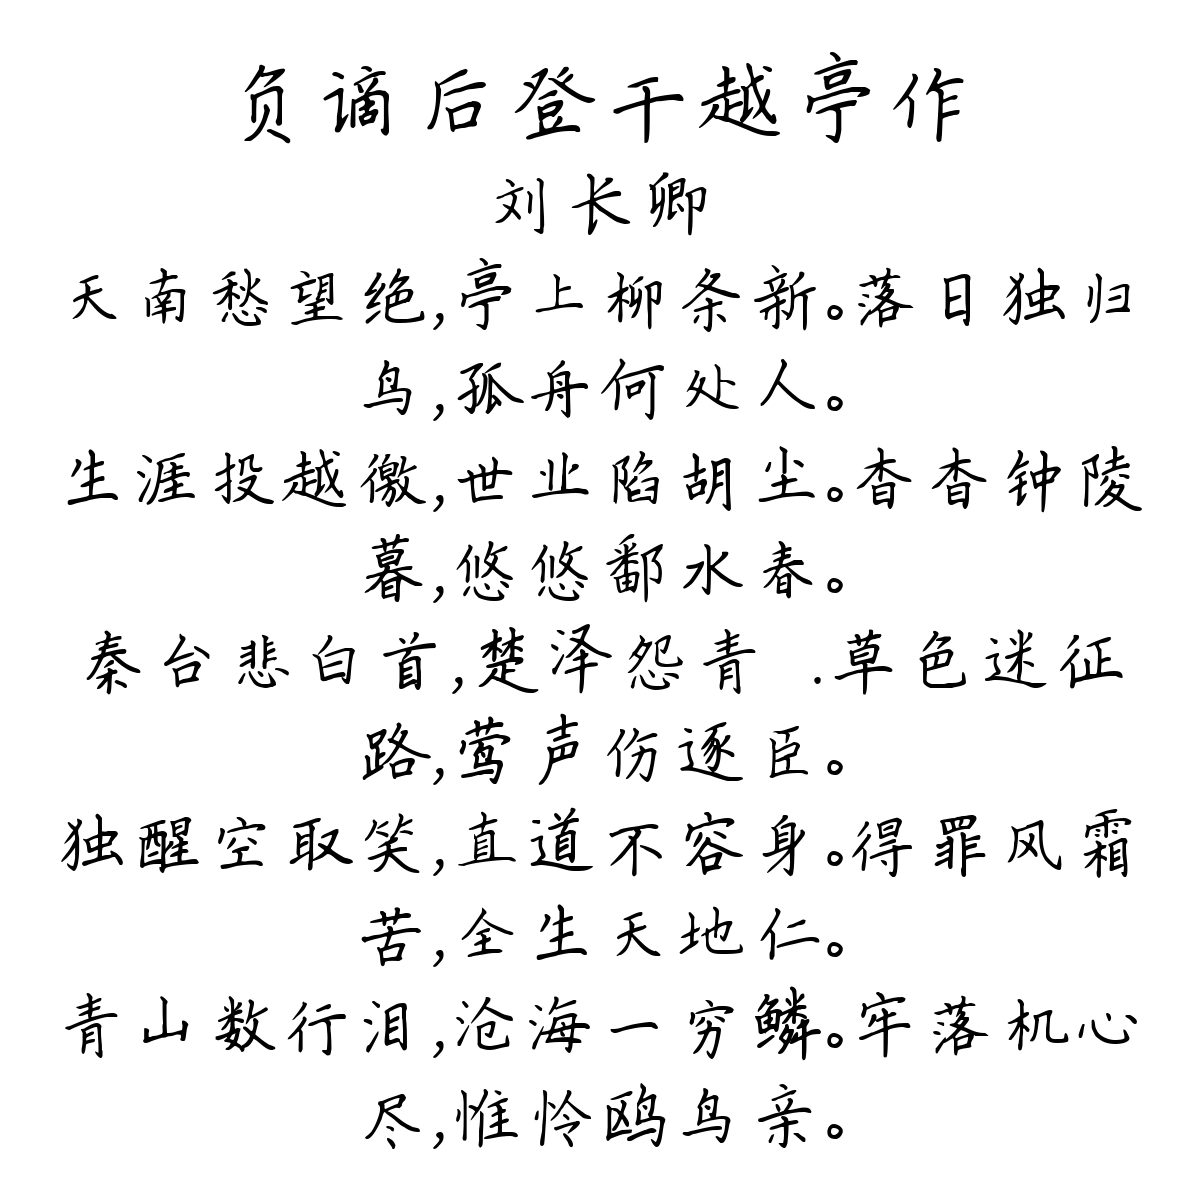 负谪后登干越亭作
刘长卿
天南愁望绝,亭上柳条新。落日独归
鸟,孤舟何处人。
生涯投越徼,世业陷胡尘。杳杳钟陵
暮,悠悠鄱水春。
秦台悲白首,楚泽怨青 .草色迷征
路,莺声伤逐臣。
独醒空取笑,直道不容身。得罪风霜
苦,全生天地仁。
青山数行泪,沧海一穷鳞。牢落机心
尽,惟怜鸥鸟亲。